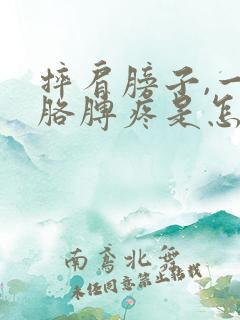 摔肩膀子,一
胳膊疼是怎
南鸢北舞
未经同意禁止搬载